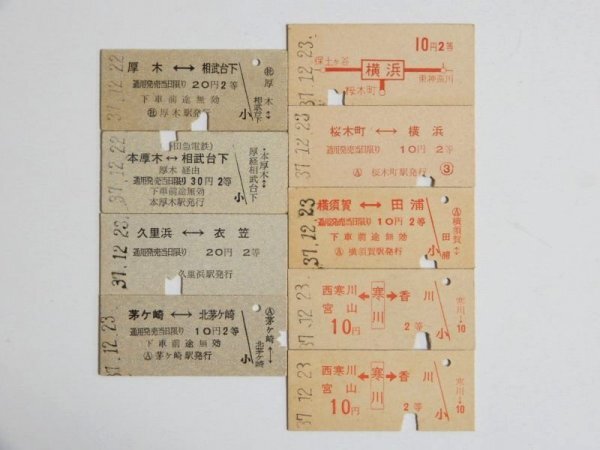 37.12.22
厚木 ↔ 相武台下
通用発売当日限り 20円 2等
下車前途無効
厚木駅発行
厚木↔
相武台下
小
37.12.23
(小田急電鉄)
本厚木 ↔ 相武台下
厚木 経由
通用発売当日限り 30円 2等
下車前途無効
本厚木駅発行
本厚木↔
厚経相武台下
小
37.12.23
久里浜 ↔ 衣笠
通用発売当日限り 20円 2等
久里浜駅発行
37.12.23
茅ケ崎 ↔ 北茅ケ崎
通用発売当日限り 10円 2等
下車前途無効
Ⓐ茅ケ崎駅発行
Ⓐ茅ケ崎↔
北茅ケ崎
小
37.12.23
10円2等
保土ヶ谷
横浜
東神奈川
桜木町
37.12.23
桜木町 ↔ 横浜
通用発売当日限り 10円 2等
Ⓐ 桜木町駅発行
③
37.12.23
横須賀 ↔ 田浦
通用発売当日限り 10円 2等
下車前途無効
Ⓐ 横須賀駅発行
Ⓐ横須賀↔
田浦
小
37.12.23
西寒川
宮山
寒川
香川
10円
2等
寒川→10
小
37.12.23
西寒川
宮山
寒川
香川
10円
2等
寒川→10
小